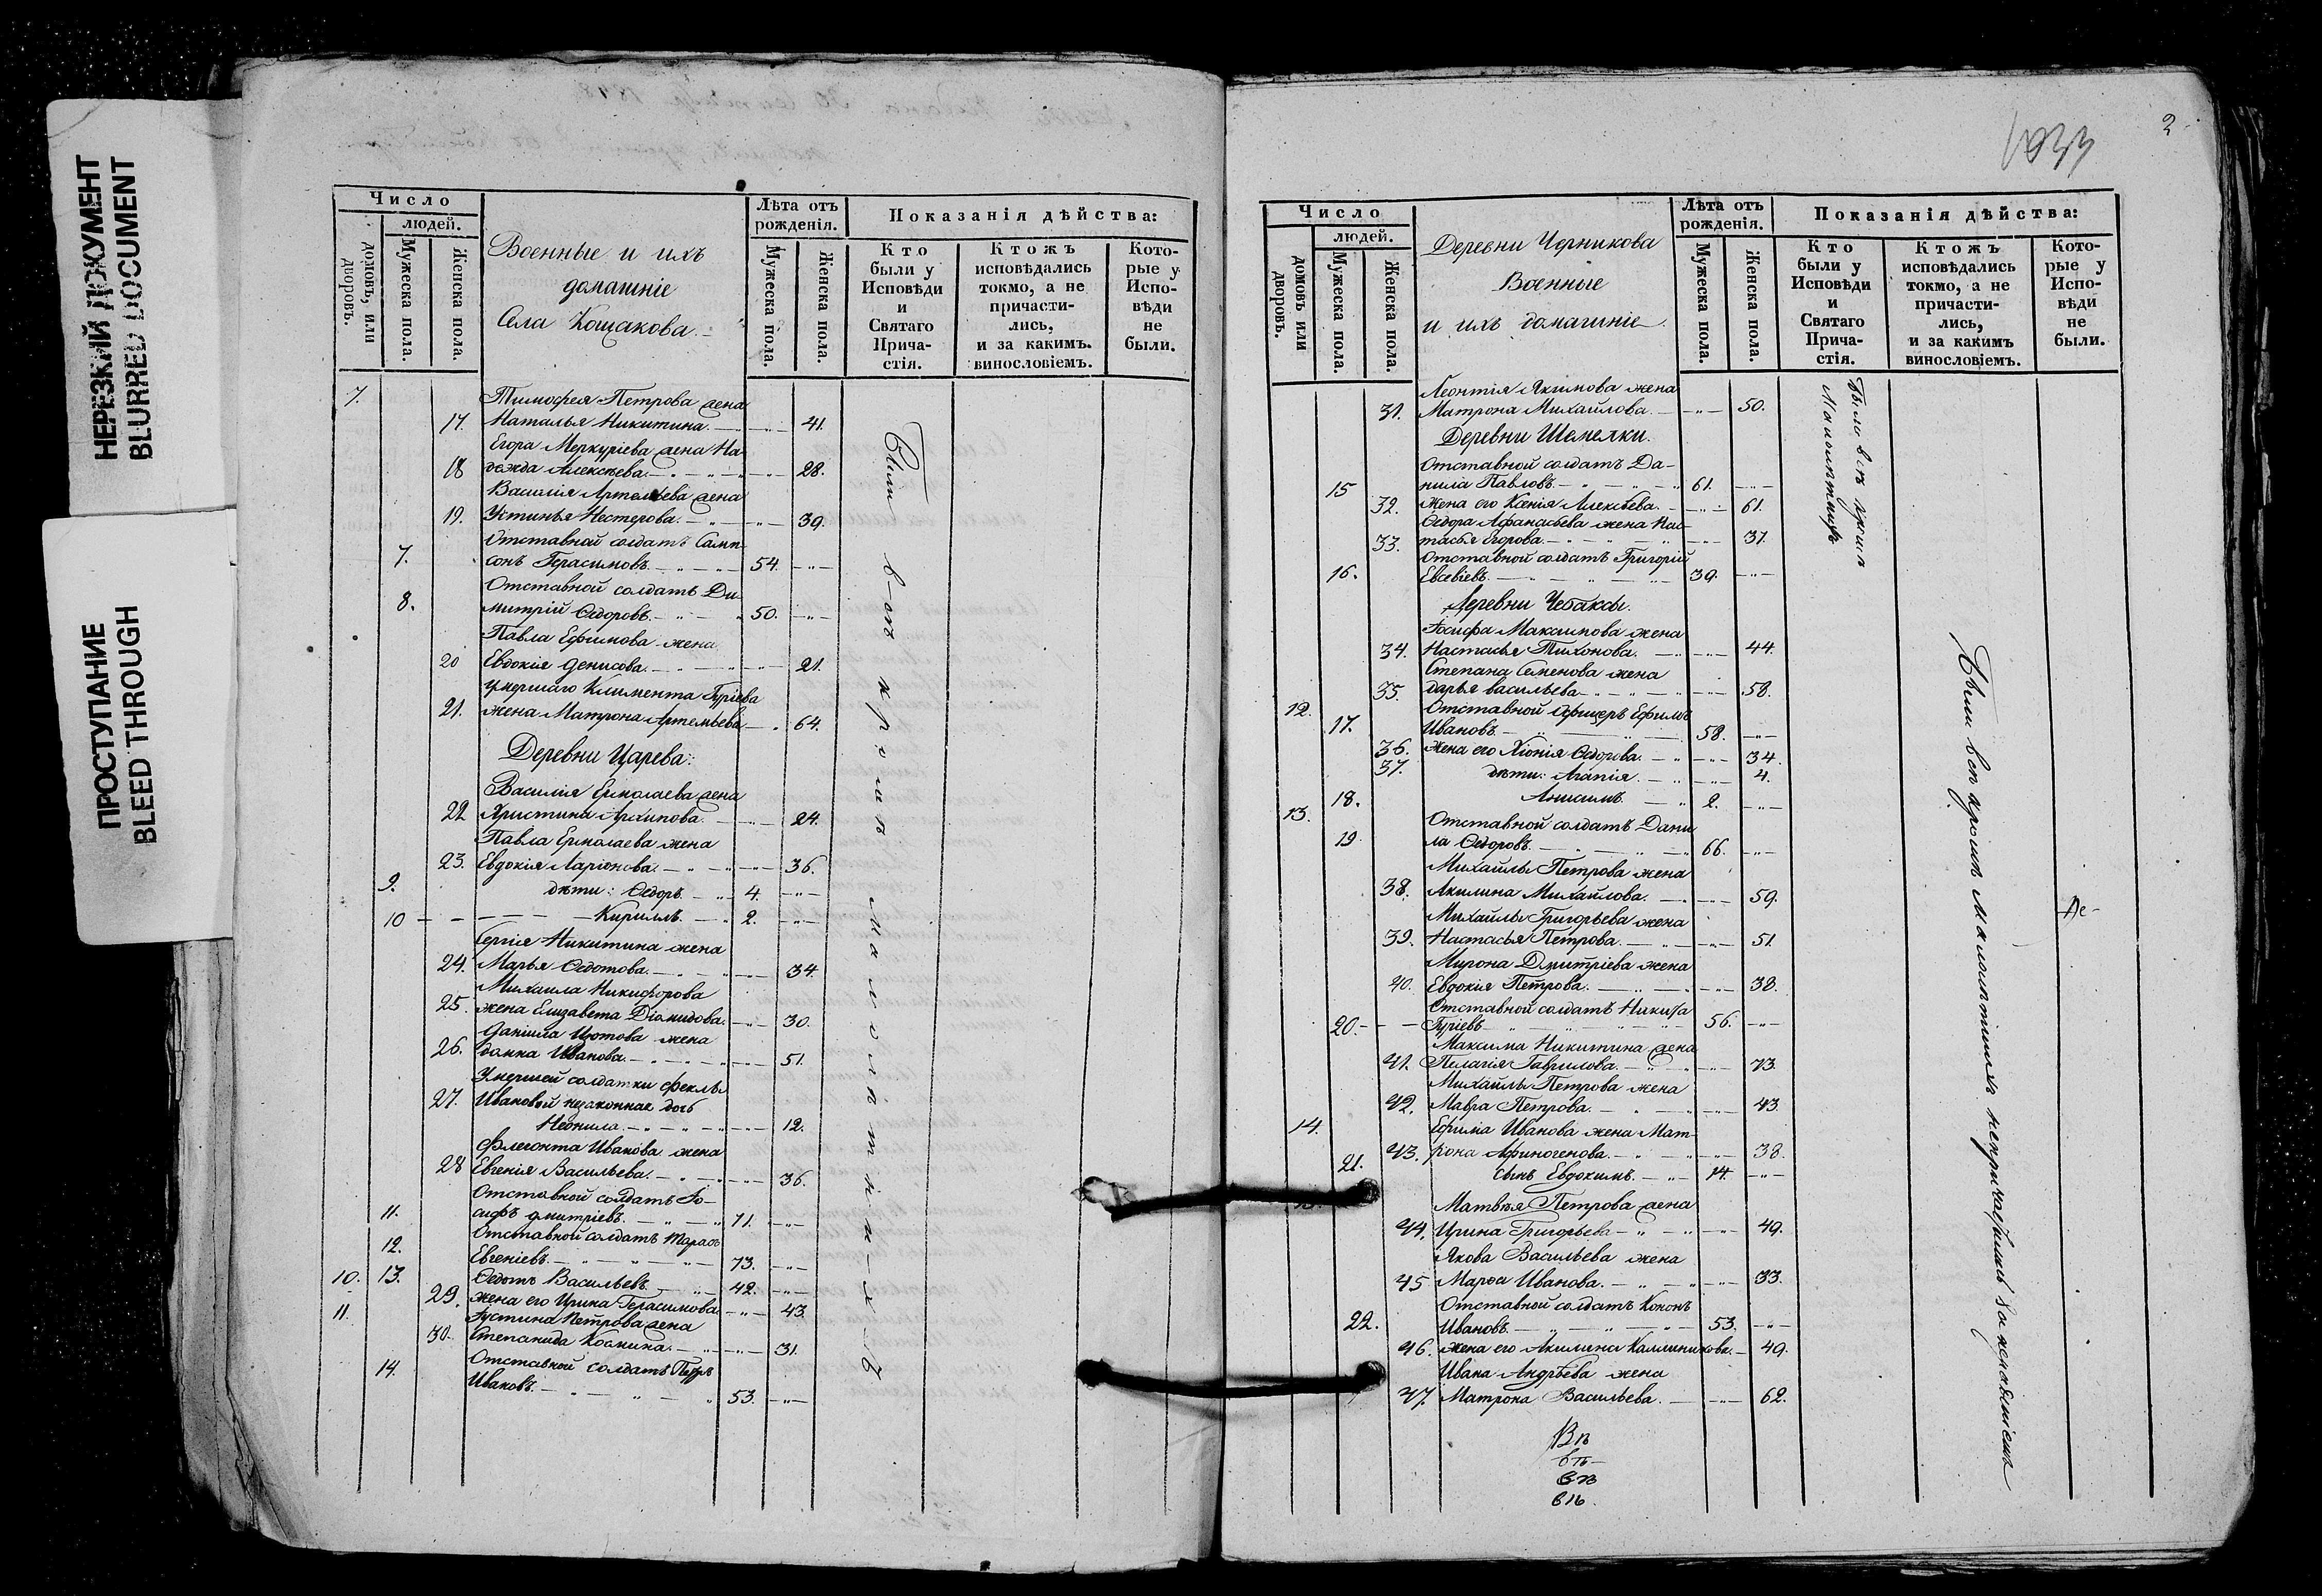 НЕРЕЗКИЙ ДОКУМЕНТ
BLURRED DOCUMENT
ПРОСТУПАНИЕ
BLEED THROUGH
Число
людей.
домовъ, или дворовъ.
Мужеска пола.
Женска пола.
Военные и ихъ
домашніе
Села Кощакова.
Лѣта отъ рожденія.
Мужеска пола.
Женска пола.
Показанія дѣйства:
Кто были у Исповѣди и Святаго Прича-стія.
Ктожъ исповѣдались токмо, а не причасти-лись, и за какимъ. винословіемъ.
Кото-рые у Испо-вѣди не были.
7.
Тимофея Петрова жена
17. Наталья Никитина. 41.
Егора Меркуріева жена На
18 дежда Алексѣева. 28.
Василія Артемьева жена
19. Устинья Нестерова. 39.
Отставной солдатъ Самп
7. сонъ Герасимовъ. 54.
Отставной солдатъ Ди
8. митрій Ѳедоровъ. 50.
Павла Ефимова жена
20 Евдокія Денисова. 21.
умершаго Климента Гуріева
21. жена Матрона Артемьева 64.
Деревни Царева:
Василія Ермолаева жена
22 Христина Архипова. 24.
Павла Ермолаева жена
23. Евдокія Ларіонова. 36.
9. дѣти: Ѳедоръ. 4.
10 Кириллъ. 2.
Сергія Никитина жена
24. Марья Ѳедотова. 34.
Михаила Никифорова
25. жена Елизавета Діомидова. 30.
Даніила Изотова жена
26. домна Иванова. 51.
Умершей солдатки Феклы
27. Ивановой незаконная дочь
Неонила. 12.
Флегонта Иванова жена
28 Евгенія Васильева. 36.
Отставной солдатъ Іо-
11. сифъ Дмитріевъ. 71.
Отставной солдатъ Тарасъ
12. Евгеніевъ. 73.
10. 13. Ѳедотъ Васильевъ. 42.
29. жена его Ирина Герасимова. 43.
11. Іустина Петрова жена
30. Степанида Космина. 31.
Отставной солдатъ Петръ
14. Ивановъ. 53.
Были всѣ кромѣ малолѣтнихъ
2
Число
людей.
домовъ или дворовъ.
Мужеска пола.
Женска пола.
Деревни Черникова
Военные
и ихъ домашніе.
Лѣта отъ рожденія.
Мужеска пола.
Женска пола.
Показанія дѣйства:
Кто были у Исповѣди и Святаго Прича-стія.
Ктожъ исповѣдались токмо, а не причасти-лись, и за какимъ винословіемъ.
Кото-рые у Испо-вѣди не были.
Леонтія Якимова жена
31. Матрона Михайлова. 50.
Деревни Шемелки.
Отставной солдатъ Да-
15 нила Павловъ. 61.
32. жена его Ксенія Алексѣева. 61.
Ѳедора Афанасьева жена Нас-
33. тасья Егорова. 37.
Отставной солдатъ Григорій
16. Евсевіевъ. 39.
Деревни Чебаксы.
Іосифа Максимова жена
34. Настасья Тихонова. 44.
Степана Семенова жена
35. дарья васильева 58.
12. Отставной офицеръ Ефимъ
17. Ивановъ. 58.
36. жена его Хіонія Ѳедорова. 34.
37. дѣти: Агапія. 4.
18. Анисимъ. 2.
13. Отставной солдатъ Дани
19. ла Ѳедоровъ. 66.
Михайлы Петрова жена
38. Акилина Михайлова. 59.
Михайлы Григорьева жена
39. Настасья Петрова. 51.
Мирона Дмитріева жена
40. Евдокія Петрова. 38.
Отставной солдатъ Никита
20. Гуріевъ 56.
Максима Никитина жена
41. Пелагія Гаврилова. 73.
Михайлы Петрова жена
42. Мавра Петрова. 43.
14. Ефима Иванова жена Мат-
43. рона Афиногенова. 38.
21. сынъ Евдокимъ. 14.
Матвѣя Петрова жена
44. Ирина Григорьева 49.
Якова Васильева жена
45 Марѳа Иванова. 33.
Отставной солдатъ Кононъ
22. Ивановъ. 53.
46. жена его Акилина Каллиникова. 49.
Ивана Андрѣева жена
47. Матрона Васильева. 62.
Были всѣ кромѣ
Малолѣтнихъ
Были всѣ кромѣ малолѣтнихъ